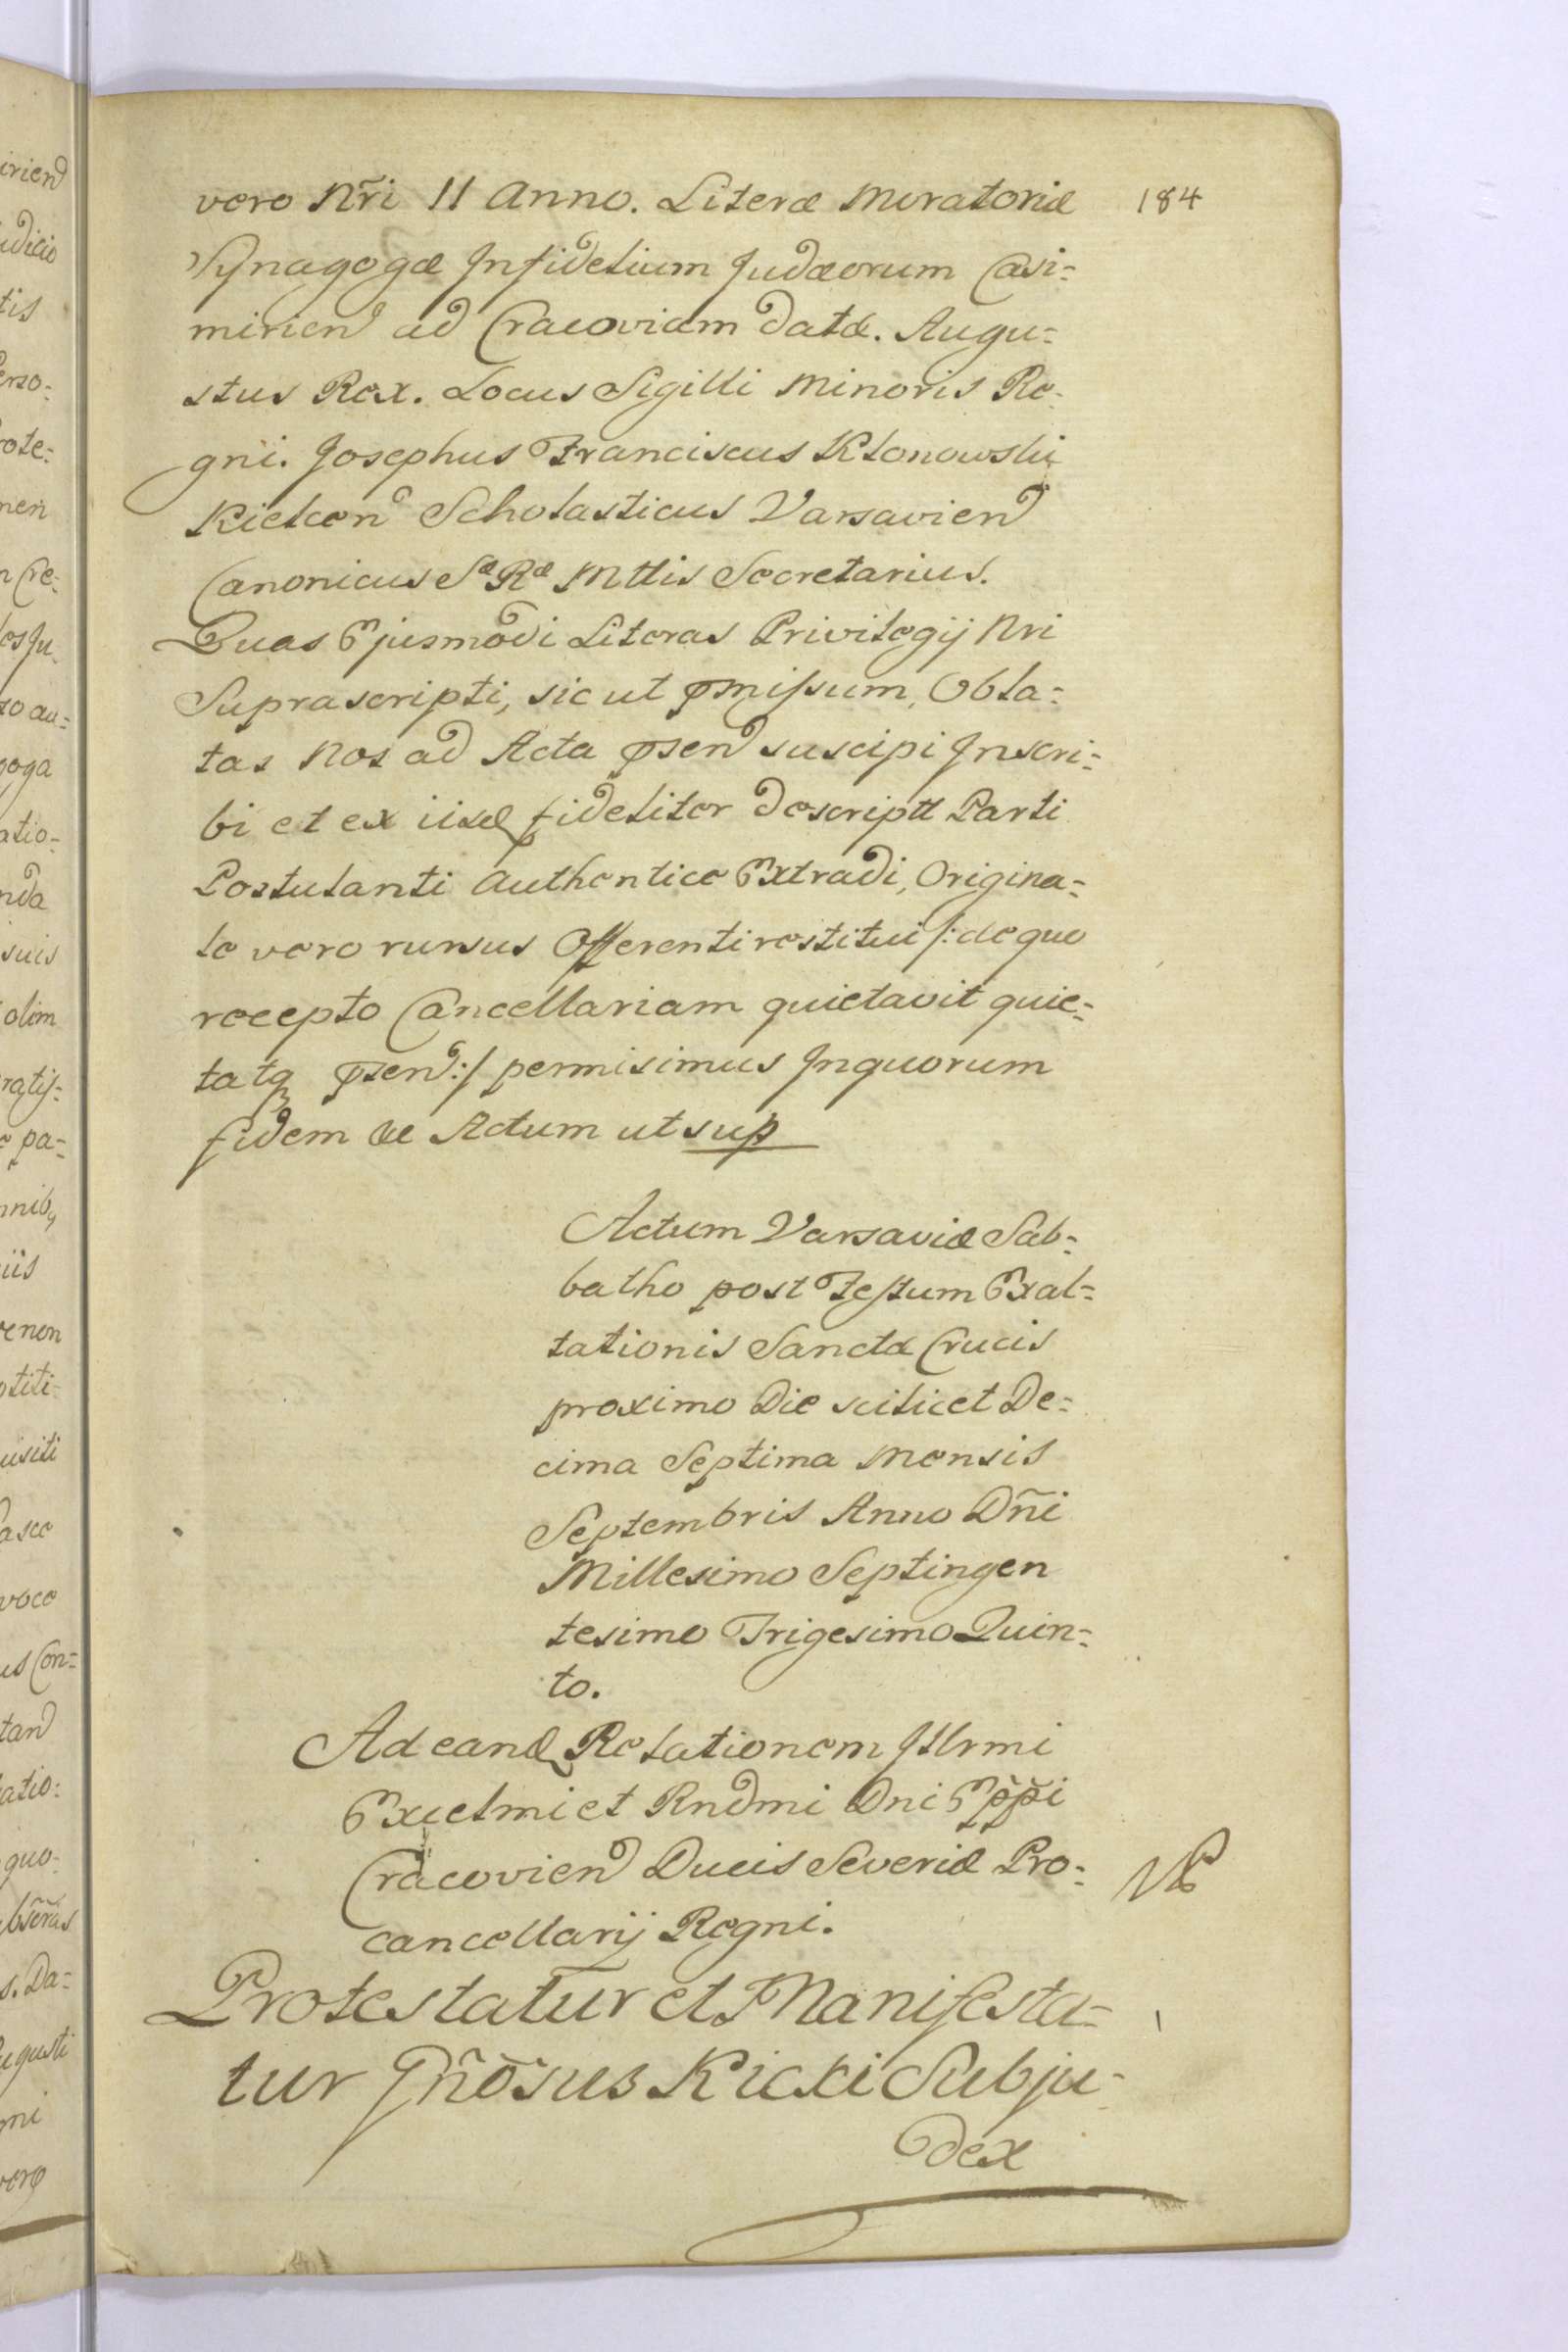 184
vero Nr̃i II Anno. Literæ Moratoriæ
Synagogæ Infidelium Judæorum Casi=
mirien ad Cracoviam datæ. Augu=
stus Rex. Locus Sigilli Minoris Re-
gni. Josephus Franciscus Klonowski
Kielcen Scholasticus Varsavien
Canonicus Sæ Ræ Mttis Secretarius.
Quas Ejusmodi Literas Privilegij Nri
Suprascripti, sic ut pmissum, Obla=
tas Nos ad Acta psen suscipi Inscri=
bi et ex iisd fideliter descriptt Parti
Postulanti Authentice Extradi, Origina=
le vero rursus Offerenti restitui /: de quo
recepto Cancellariam quietavit quie=
tatq psen :/ permisimus Inquorum
fidem &c Actum ut sup
Actum Varsaviæ Sab=
batho post Festum Exal=
tationis Sanctæ Crucis
proximo Die scilicet De=
cima Septima Mensis
Septembris Anno Dñi
Millesimo Septingen
tesimo Trigesimo Quin=
to.
Ad eand Relationem Illrmi
Excelmi et Rndmi Dni Epp̃i
Cracovien Ducis Severiæ Pro=
cancellarij Regni.
NB
Protestatur et Manifesta=
tur Gñosus Kicki Subju=
dex
irien
udicio
tis
erso=
rote=
nen
n Cre=
os Ju
so au=
goga
atio=
nda
suis
olim
ratis=
e pa=
iis
ve non
titi=
usiti
asce
voce
us Con=
tan
atio=
quo=
s. Da=
ugusti
mi
vero